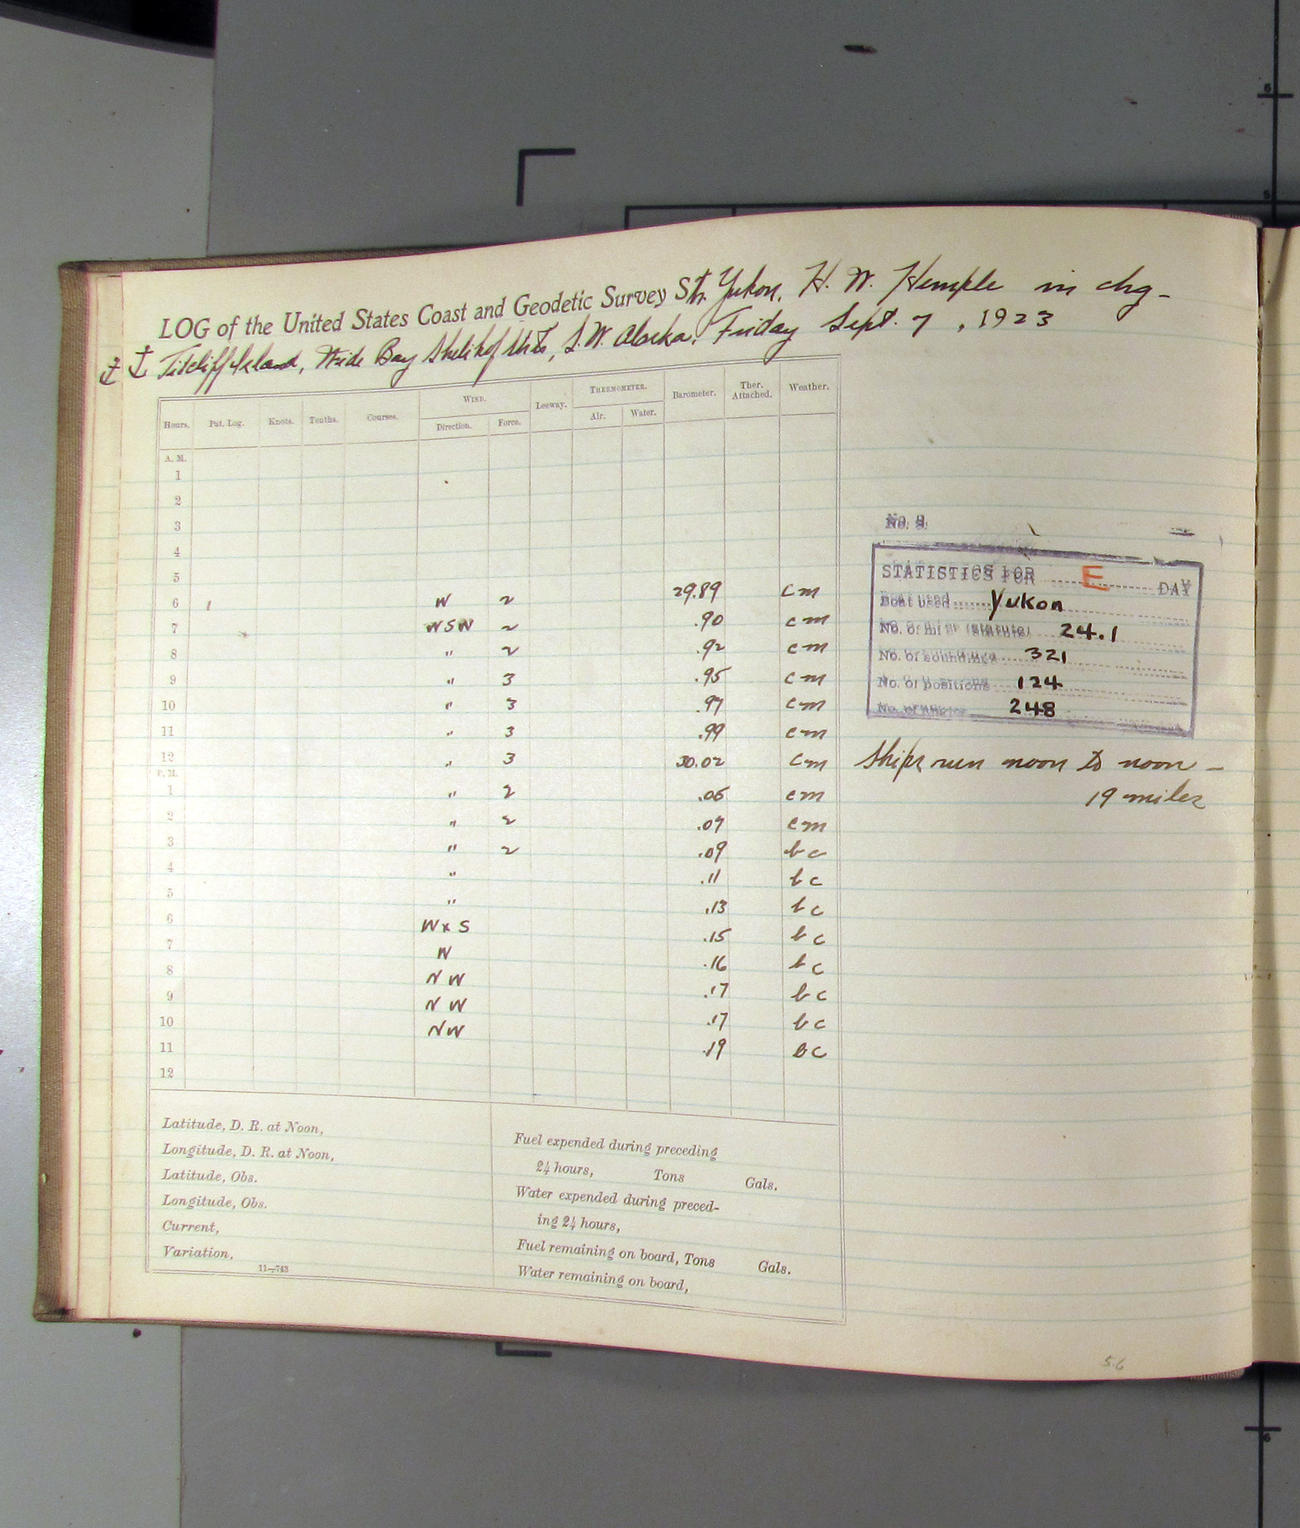 LOG of the United States Coast and Geodetic Survey Str. Yukon, H. W. Hemple in chg-
Island, Wide Bay Shelikof Strts, S.W. Alaska. Friday Sept. 7, 1923
Hours. Pat. Log. Knots. Tenths. Courses. WIND. Leeway. THERMOMETER. Barometer. Ther. Attached. Weather.
Direction. Force. Air. Water.
A. M.
1
2
3
4
5
6 W 2 29.89 cm
7 WSW 2 .90 cm
8 " 2 .92 cm
9 " 3 .95 cm
10 " 3 .97 cm
11 " 3 .99 cm
12 " 3 30.02 cm
P. M.
1 " 2 .05 cm
2 " 2 .07 cm
3 " 2 .09 bc
4 " .11 bc
5 " .13 bc
6 WxS .15 bc
7 W .16 bc
8 NW .17 bc
9 NW .17 bc
10 NW .19 bc
11
12
No. 9.
STATISTICS FOR E DAY
Boat used Yukon
No. of mi (statute) 24.1
No. of soundings 321
No. of positions 124
No. of angles 248
Ship's run noon to noon -
19 miles
Latitude, D. R. at Noon,
Longitude, D. R. at Noon,
Latitude, Obs.
Longitude, Obs.
Current,
Variation,
11—743
Fuel expended during preceding
24 hours, Tons Gals.
Water expended during preced-
ing 24 hours,
Fuel remaining on board, Tons Gals.
Water remaining on board,
56